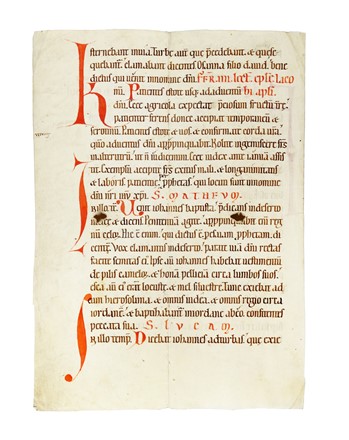 sternebant in uia. Turbe aut que precedebant. & que seque
quebant. clamabant dicentes. Osanna filio dauid. bene
dictus qui uenit in nomine dni. FER. IIII. Lect. epist. iaco
K Patientes estote usq; ad aduentu BI APLI.
dni. Ecce agricola expectat preciosum fructu
patienter ferens donec accipiat temporaneu &
serotinu. Patientes estote & uos & confirmate corda
aduentus dni appropinquabit. Nolite ingemiscere
in alterutru. ut n iudicemini. Ecce iudex ante ianua assis
tit. Exemplu accipite exitus mali. & longanimitatis
& laboris. & patientie. pphetas. qui locuti sunt in nomine
dni nri ihu xpi. S. MATHEUM.
In illo Uenit iohannes baptista. predicans in deserto
iudee & dicens. Penitentia agite. appropinquabit eni reg
nu celoru. Hic e enim. qui dictus e p esaiam. pphetam. di
cente. Vox clamantis in deserto. parate uia dni. rectas
facite semitas ei. Ipse aut iohannes habebat uestimentu
de pilis cameloru. & zona pellicea circa lumbos suos.
esca aut ei erat locuste. & mel siluestre. Tunc exiebat ad
eum hierosolima. & omnis iudea. & omnis regio circa
iordane. & baptizabant in iordane abeo. confitentes
peccata sua. S. LUCAM.
In illo temp. Dicebat iohannes ad turbas que exie